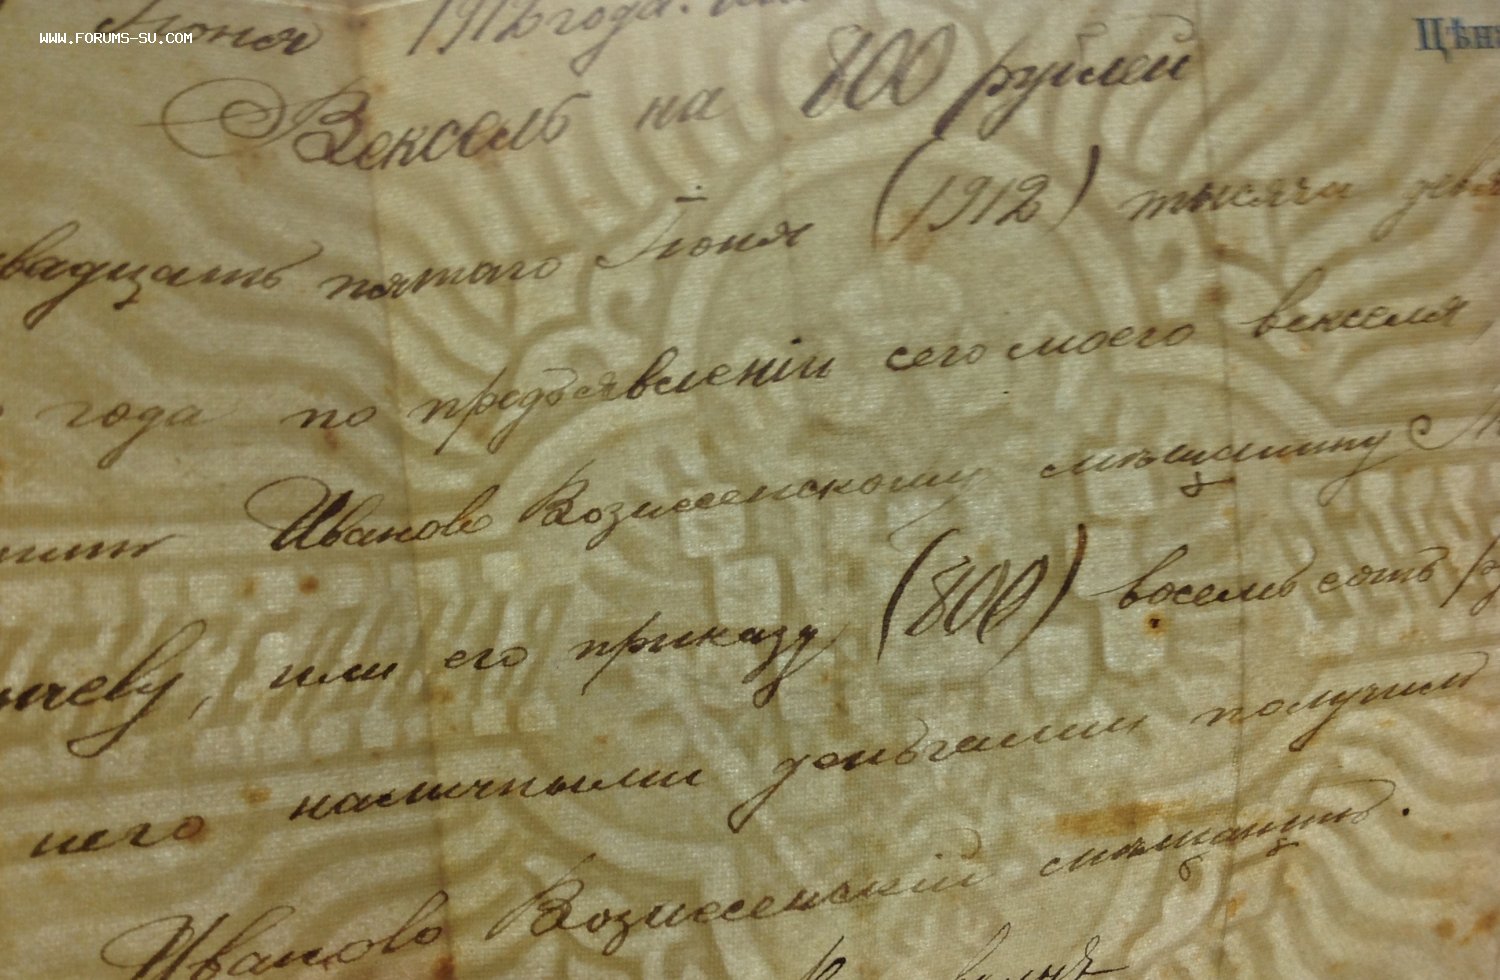 WWW.FORUMS-SU.COM
Іюня 1912 года.
Цѣн
Вексель на 800 рублей
вадцать пятаго Іюня (1912) тысяча девя
года по предъявленіи сего моего векселя
Иваново Вознесенскому мѣщанину
чеву, или его приказу (800) восемь сотъ р
него наличными деньгами получилъ
Иваново Вознесенскій мѣщанинъ.